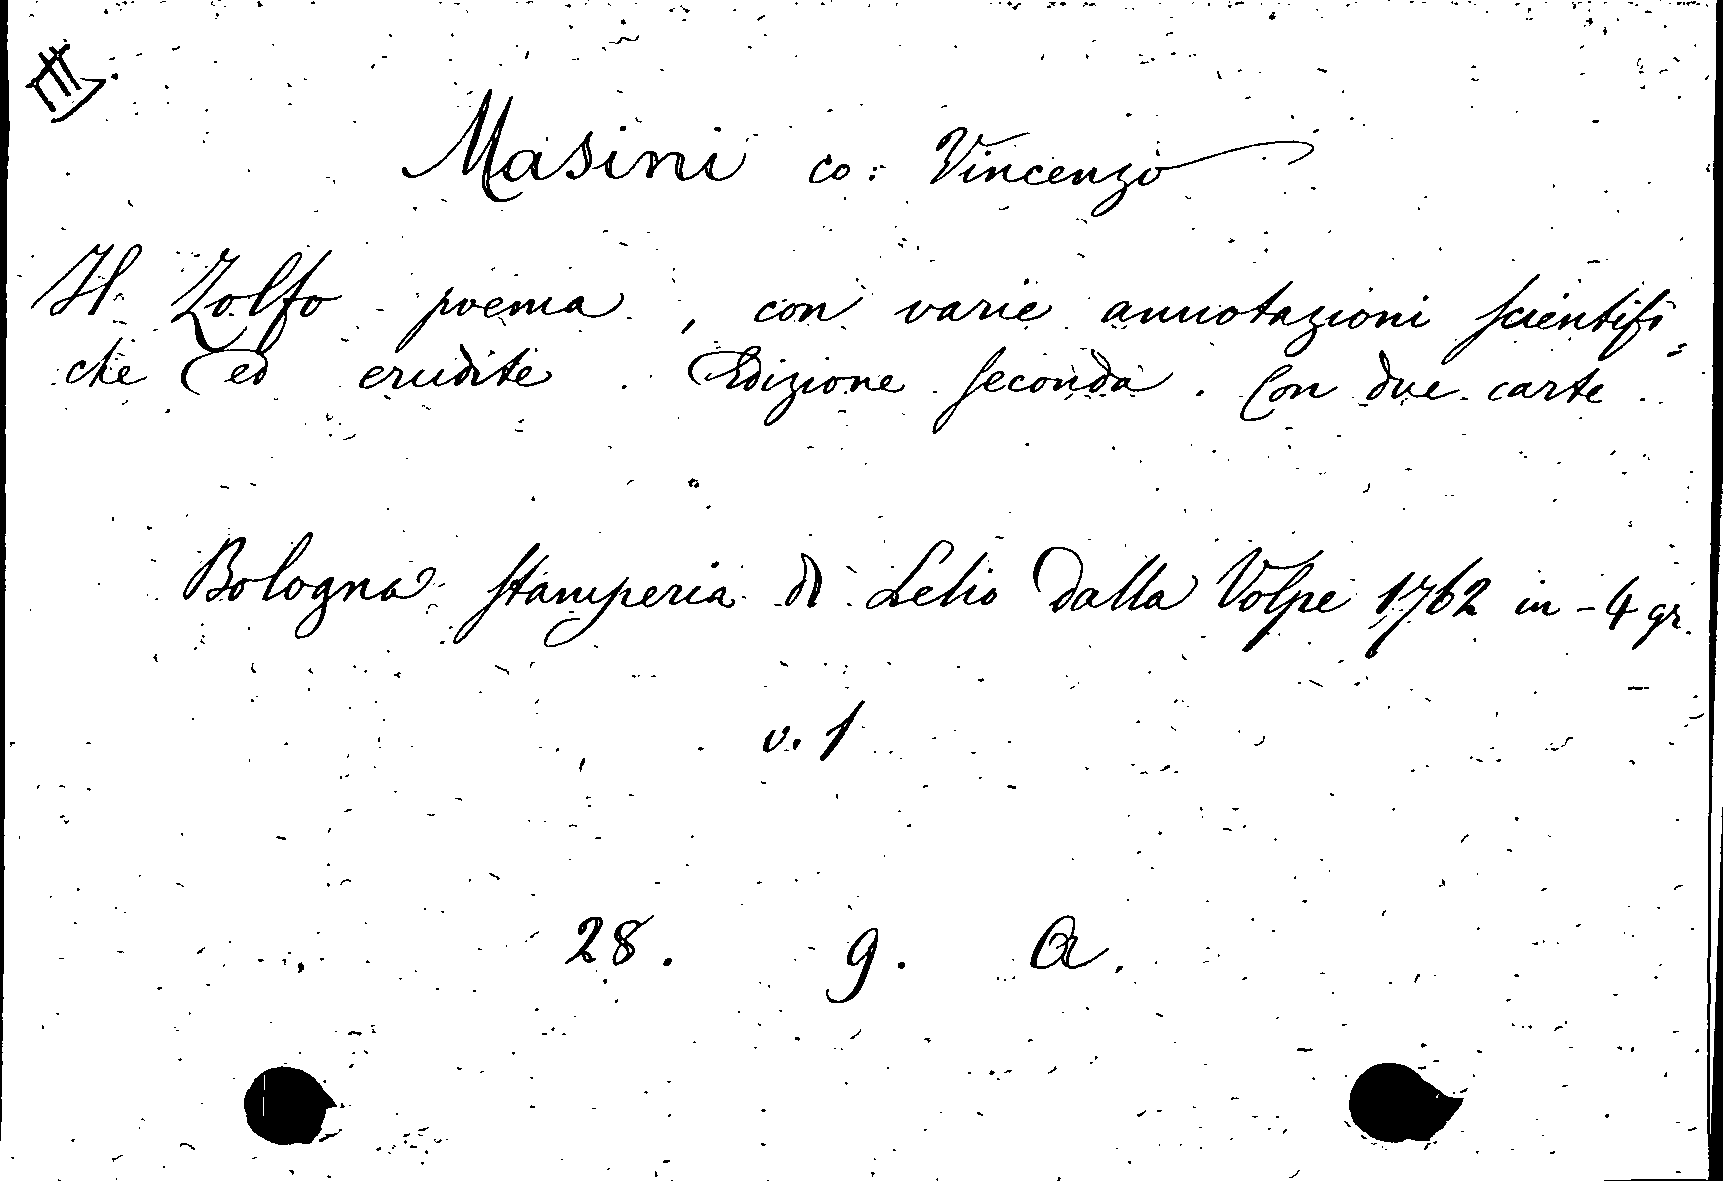 Masini co: Vincenzo
Il Zolfo poema, con varie annotazioni scientifi=
che ed erudite. Edizione seconda. Con due carte
Bologna stamperia di Lelio dalla Volpe 1762 in-4 gr.
v. 1
28. g. A.